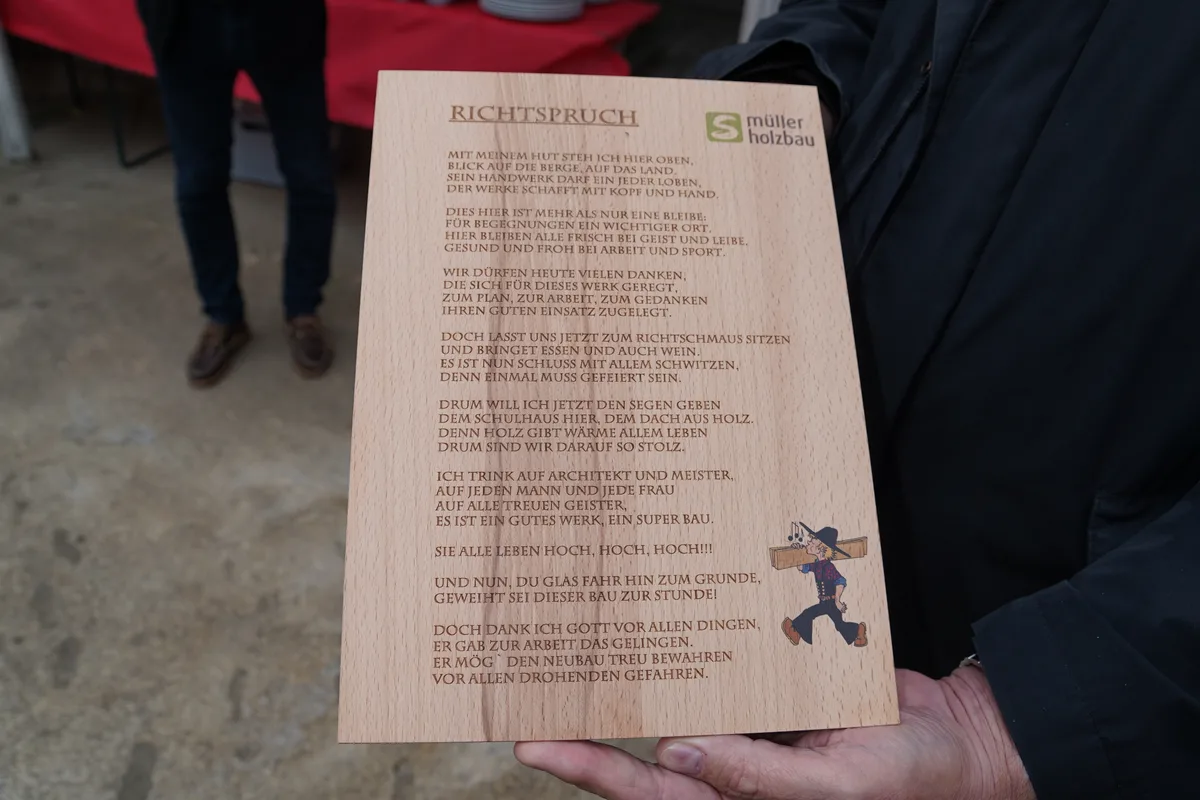 RICHTSPRUCH
S müller
holzbau
MIT MEINEM HUT STEH ICH HIER OBEN,
BLICK AUF DIE BERGE, AUF DAS LAND.
SEIN HANDWERK DARF EIN JEDER LOBEN,
DER WERKE SCHAFFT MIT KOPF UND HAND.
DIES HIER IST MEHR ALS NUR EINE BLEIBE:
FÜR BEGEGNUNGEN EIN WICHTIGER ORT.
HIER BLEIBEN ALLE FRISCH BEI GEIST UND LEIBE,
GESUND UND FROH BEI ARBEIT UND SPORT.
WIR DÜRFEN HEUTE VIELEN DANKEN,
DIE SICH FÜR DIESES WERK GEREGT,
ZUM PLAN, ZUR ARBEIT, ZUM GEDANKEN
IHREN GUTEN EINSATZ ZUGELEGT.
DOCH LASST UNS JETZT ZUM RICHTSCHMAUS SITZEN
UND BRINGET ESSEN UND AUCH WEIN.
ES IST NUN SCHLUSS MIT ALLEM SCHWITZEN,
DENN EINMAL MUSS GEFEIERT SEIN.
DRUM WILL ICH JETZT DEN SEGEN GEBEN
DEM SCHULHAUS HIER, DEM DACH AUS HOLZ.
DENN HOLZ GIBT WÄRME ALLEM LEBEN
DRUM SIND WIR DARAUF SO STOLZ.
ICH TRINK AUF ARCHITEKT UND MEISTER,
AUF JEDEN MANN UND JEDE FRAU
AUF ALLE TREUEN GEISTER,
ES IST EIN GUTES WERK, EIN SUPER BAU.
SIE ALLE LEBEN HOCH, HOCH, HOCH!!!
UND NUN, DU GLAS FAHR HIN ZUM GRUNDE,
GEWEIHT SEI DIESER BAU ZUR STUNDE!
DOCH DANK ICH GOTT VOR ALLEN DINGEN,
ER GAB ZUR ARBEIT DAS GELINGEN.
ER MÖG` DEN NEUBAU TREU BEWAHREN
VOR ALLEN DROHENDEN GEFAHREN.